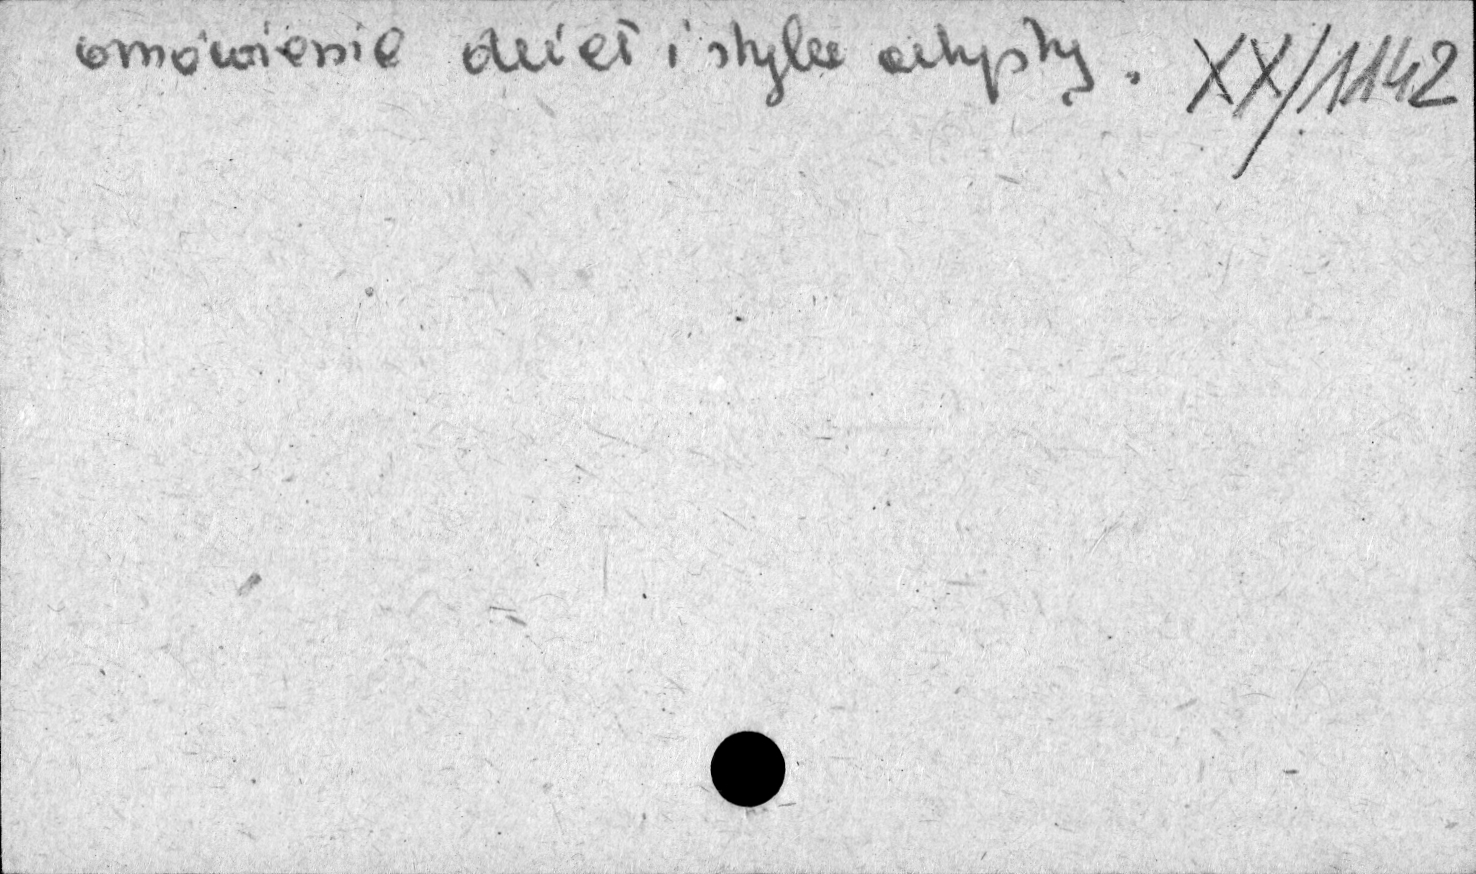 omówienie dzieł i stylu artysty. XX/1142